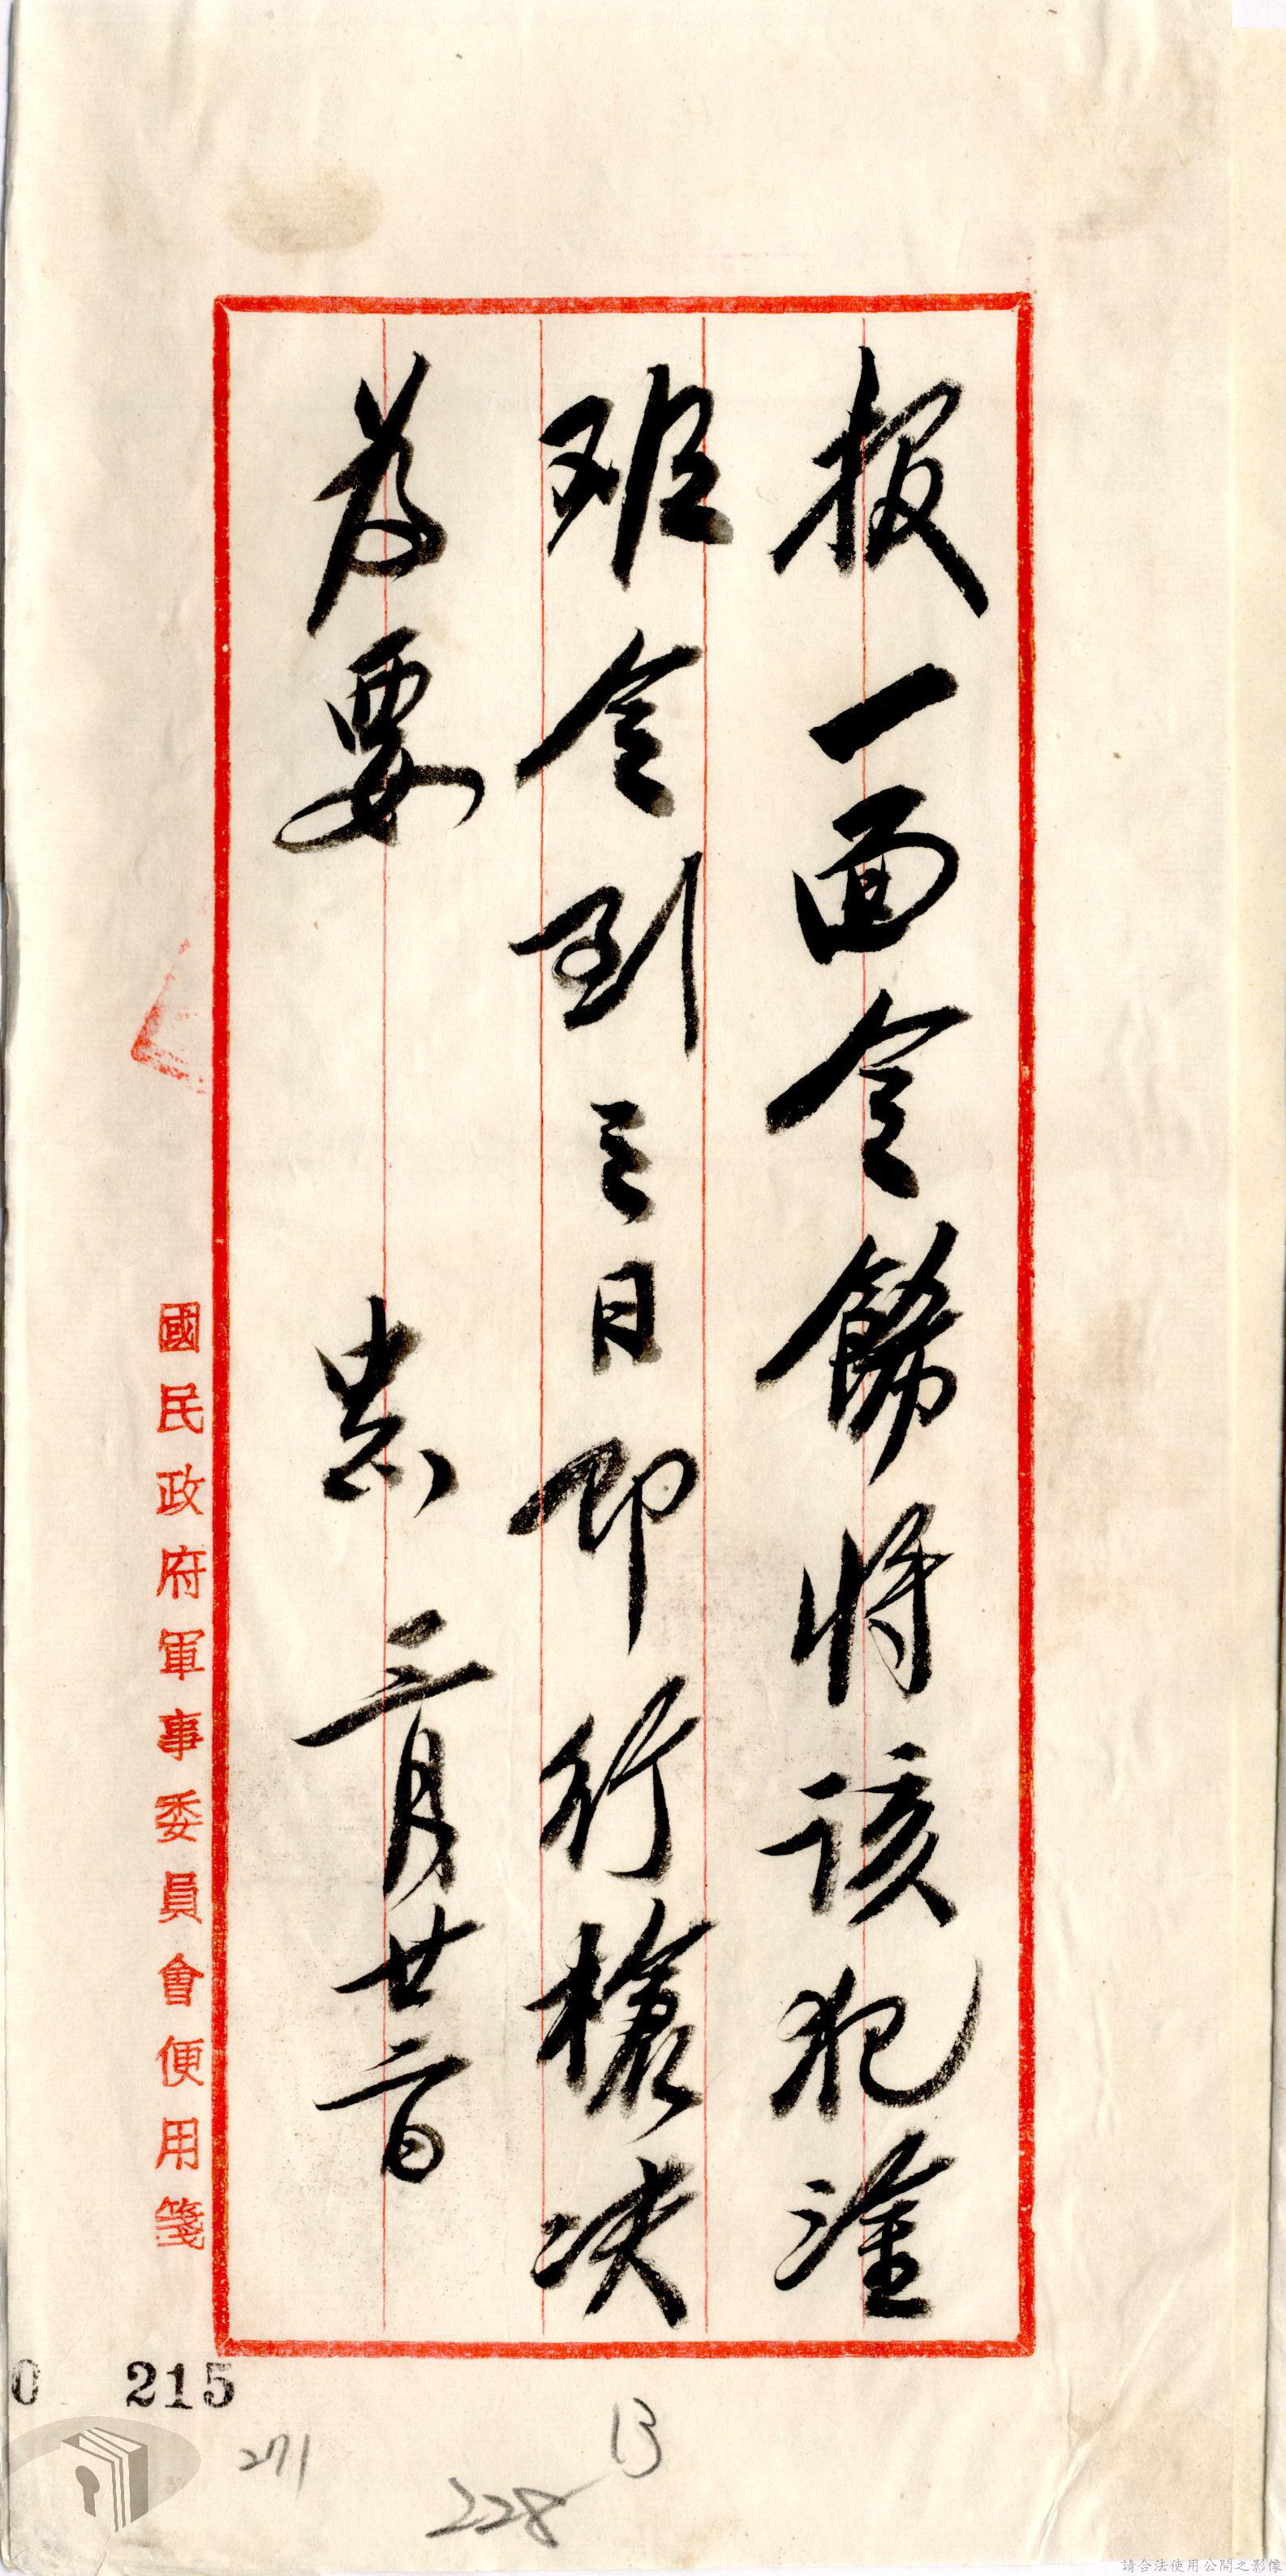 报一面令飭将該犯塗
班令到三日即行槍决
為要　　忠　三月廿二日
國民政府軍事委員會便用箋
0 215
271
13
228
請合法使用公開之影像